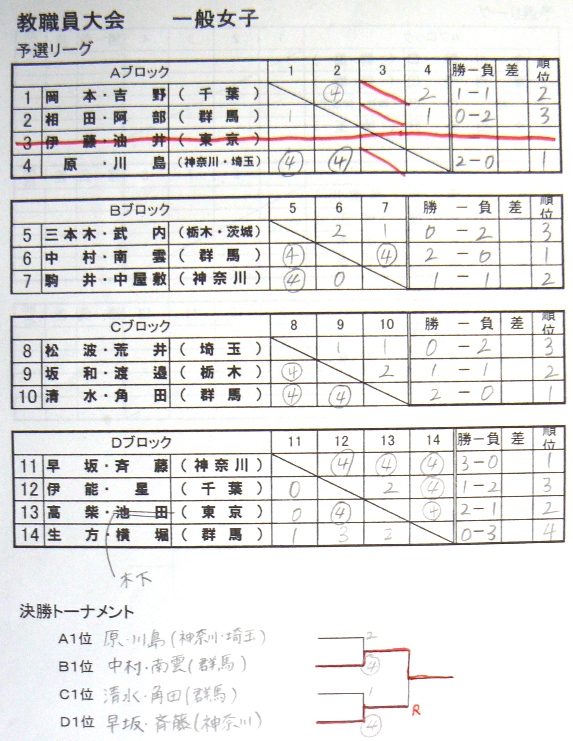 教職員大会 一般女子
予選リーグ
Aブロック 1 2 3 4 勝-負 差 順位
1 岡本・吉野 (千葉) ④ 2 1-1 2
2 相田・阿部 (群馬) 1 1 0-2 3
3 伊藤・油井 (東京)
4 原・川島 (神奈川・埼玉) ④ ④ 2-0 1
Bブロック 5 6 7 勝-負 差 順位
5 三本木・武内 (栃木・茨城) 2 1 0-2 3
6 中村・南雲 (群馬) ④ ④ 2-0 1
7 駒井・中屋敷 (神奈川) ④ 0 1-1 2
Cブロック 8 9 10 勝-負 差 順位
8 松波・荒井 (埼玉) 1 1 0-2 3
9 坂和・渡邉 (栃木) ④ 2 1-1 2
10 清水・角田 (群馬) ④ ④ 2-0 1
Dブロック 11 12 13 14 勝-負 差 順位
11 早坂・斉藤 (神奈川) ④ ④ ④ 3-0 1
12 伊能・星 (千葉) 0 2 ④ 1-2 3
13 高柴・池田 (東京) 0 ④ ④ 2-1 2
14 生方・横堀 (群馬) 1 3 2 0-3 4
木下
決勝トーナメント
A1位 原・川島(神奈川・埼玉) 2
B1位 中村・南雲(群馬) ④
C1位 清水・角田(群馬) 1
D1位 早坂・斉藤(神奈川) ④
R